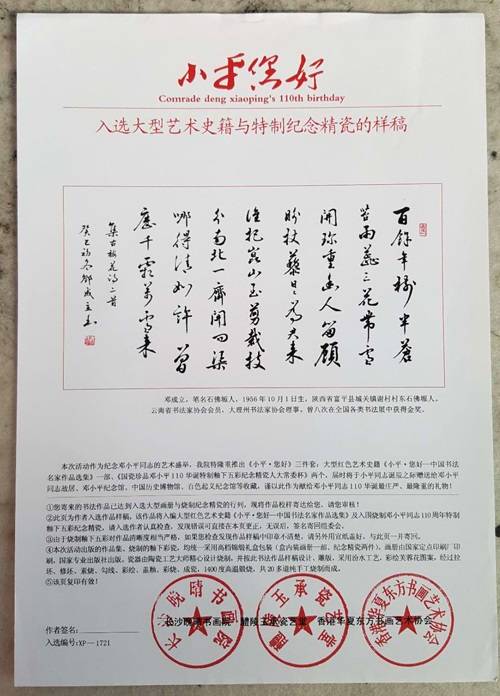 小平您好
Comrade deng xiaoping's 110th birthday
入选大型艺术史籍与特制纪念精瓷的样稿
百馀年树半苍
苔两蕊三花带雪
开珍重幽人留顾
盼杖藜日日为来
谁把昆山玉剪裁枝
分南北一齐开问渠
哪得清如许曾
历千霜万雪来
集古梅花诗二首
癸巳初冬邓成立书
邓成立，笔名石佛堀人，1956年10月1日生，陕西省富平县城关镇谢村村东石佛堀人，
云南省书法家协会会员、大理州书法家协会理事，曾八次在全国各类书法展中获得金奖。
本次活动作为纪念邓小平同志的艺术盛举，我院特隆重推出《小平·您好》三件套：大型红色艺术史籍《小平·您好—中国书法
名家作品选集》一部、《国瓷珍品邓小平110华诞特制釉下五彩纪念精瓷人大常委杯》两个，届时将于小平同志诞辰之际赠送给邓小平
同志故居、邓小平纪念馆、中国历史博物馆、百色起义纪念馆等收藏，谨以此作为献给邓小平同志110华诞最庄严、最隆重的礼物！
①您寄来的书法作品已达到入选大型画册与烧制纪念精瓷的行列，现将作品校样寄达给您，请您审核！
②此页为作者入选作品样稿，该作品将入编大型红色艺术史籍《小平·您好—中国书法名家作品选集》及入围烧制邓小平同志110周年特制
釉下五彩纪念精瓷，请入选作者认真检查，发现错误可直接在本页更正，无误后，签名寄回组委会。
③由于烧制釉下五彩对作品的清晰度相当严格，如果您检查发现作品样稿中印章不清楚，请另外用宣纸盖好，与此页一并寄回。
④本次活动出版的作品集、烧制的釉下彩瓷，均统一采用高档锦缎礼盒包装（盒内装画册一部、纪念精瓷两件）。画册由国家定点印刷厂印
刷，国家专业出版社出版，瓷器由陶瓷工艺大师精心设计烧制，并按此书法作品样稿设计、雕版，采用拉水工艺，彩绘芙蓉花图案，经过拉
坯、修坯、素烧、勾线、彩绘、盖釉、彩烧、成瓷，1400度高温煅烧，共20多道纯手工烧制而成。
⑤该页复印有效！
作者签名：
入选编号:XP—1721
长沙晚晴书画院 醴陵玉承瓷艺堂 香港华夏东方书画艺术协会
长沙晚晴书画院
醴陵玉承瓷艺堂
香港华夏东方书画艺术协会